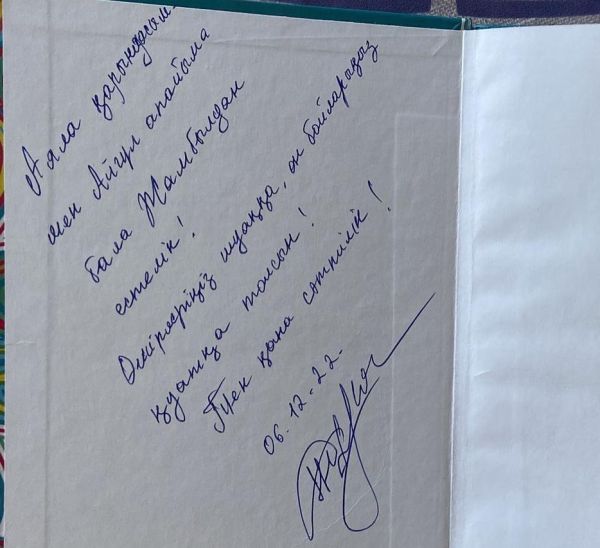 Аяла қарындасым
мен Айгүл апайыма
бала Жамбылдан
естелік!
Өмірлеріңіз шуаққа, он бойларыңыз
қуатқа толсын!
Тек қана сәттілік!
06.12.22.